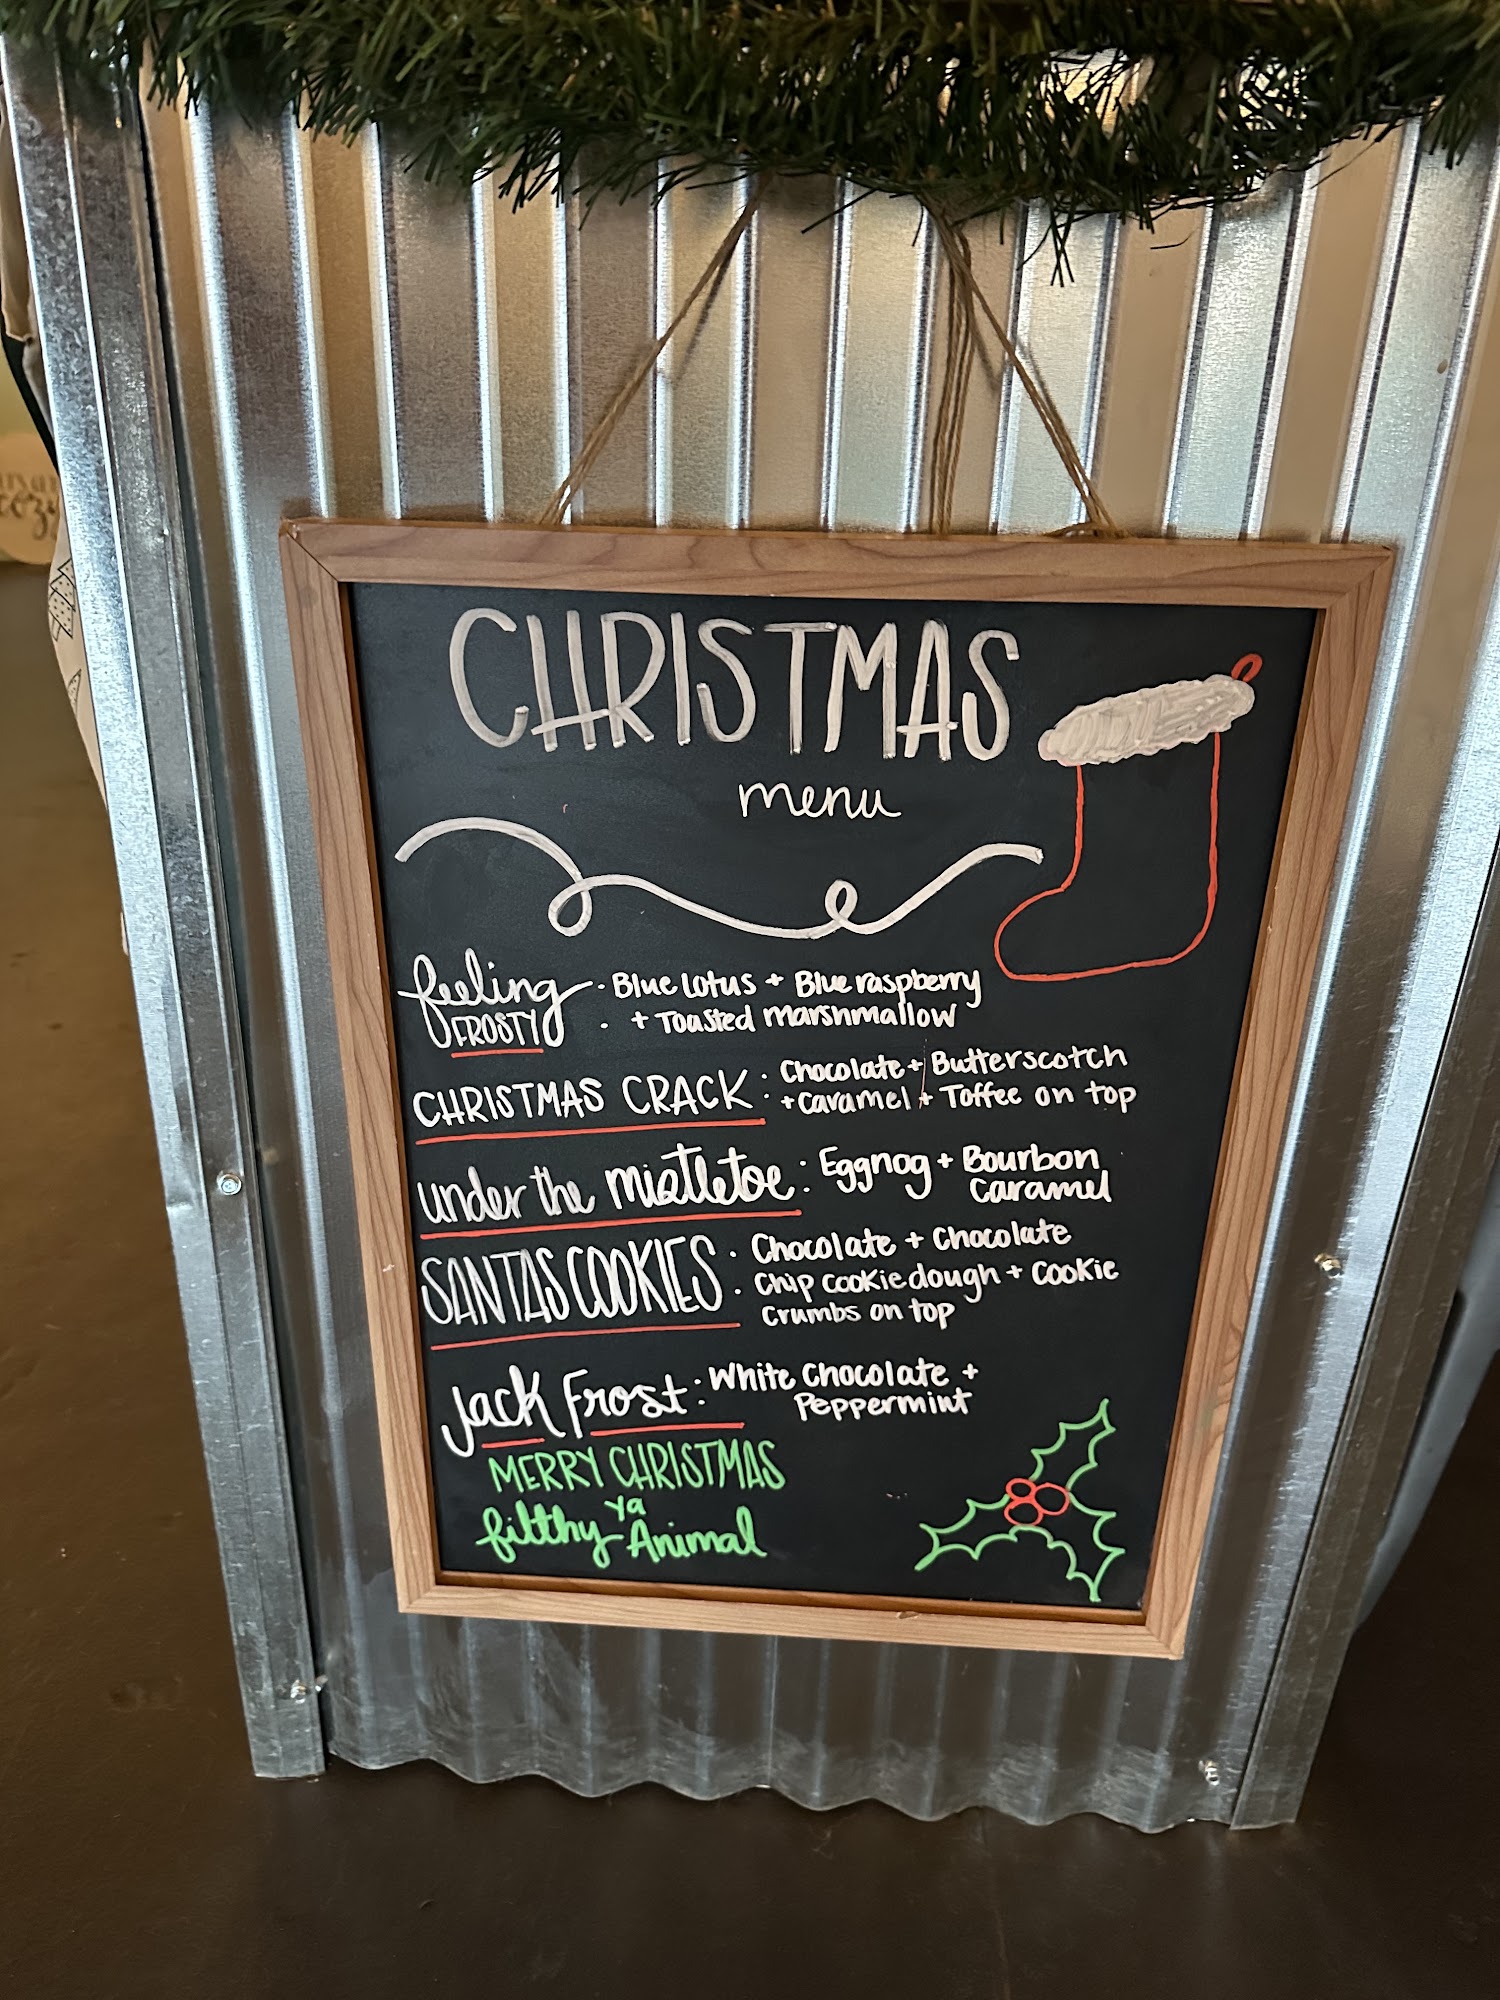 CHRISTMAS
menu
feeling
FROSTY
· Blue Lotus + Blue raspberry
· + Toasted marshmallow
CHRISTMAS CRACK : Chocolate + Butterscotch
+ Caramel + Toffee on top
under the mistletoe : Eggnog + Bourbon
Caramel
SANTAS COOKIES : Chocolate + Chocolate
Chip cookie dough + Cookie
Crumbs on top
Jack Frost : White Chocolate +
Peppermint
MERRY CHRISTMAS
ya
filthy Animal
cozy